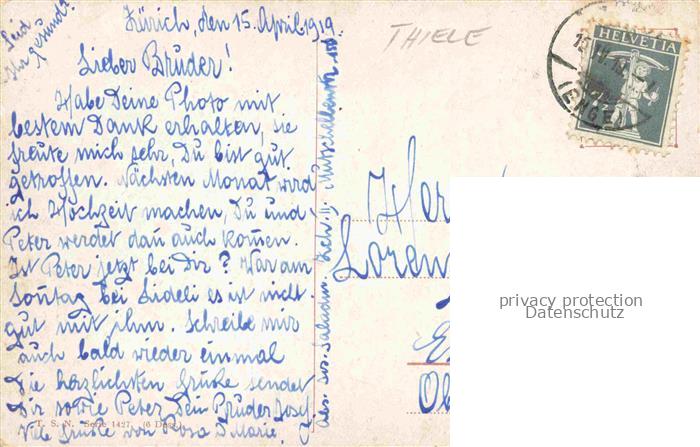 Seid
Ihr gesund?
Zürich, den 15. April 1919.
Lieber Bruder!
Habe Deine Photo mit
bestem Dank erhalten, sie
freute mich sehr, Du bist gut
getroffen. Nächsten Monat wird
ich Hochzeit machen, Du und
Peter werdet dan̄ auch kom̄en.
Ist Peter jetzt bei Dir? War am
Son̄tag bei Lideli es ist nicht
gut mit ihm. Schreibe mir
auch bald wieder einmal
Die herzlichsten Grüße sendet
Dir sowie Peter, Dein Bruder Josef
Viele Grüße von Rosa & Marie.
T. S. N. Serie 1427. (6 Dess.)
Abs. Jos. Zch. II. Mutschellenstr. 158
THIELE
HELVETIA
(ENGE)
Her
Loren
Ob
privacy protection
Datenschutz